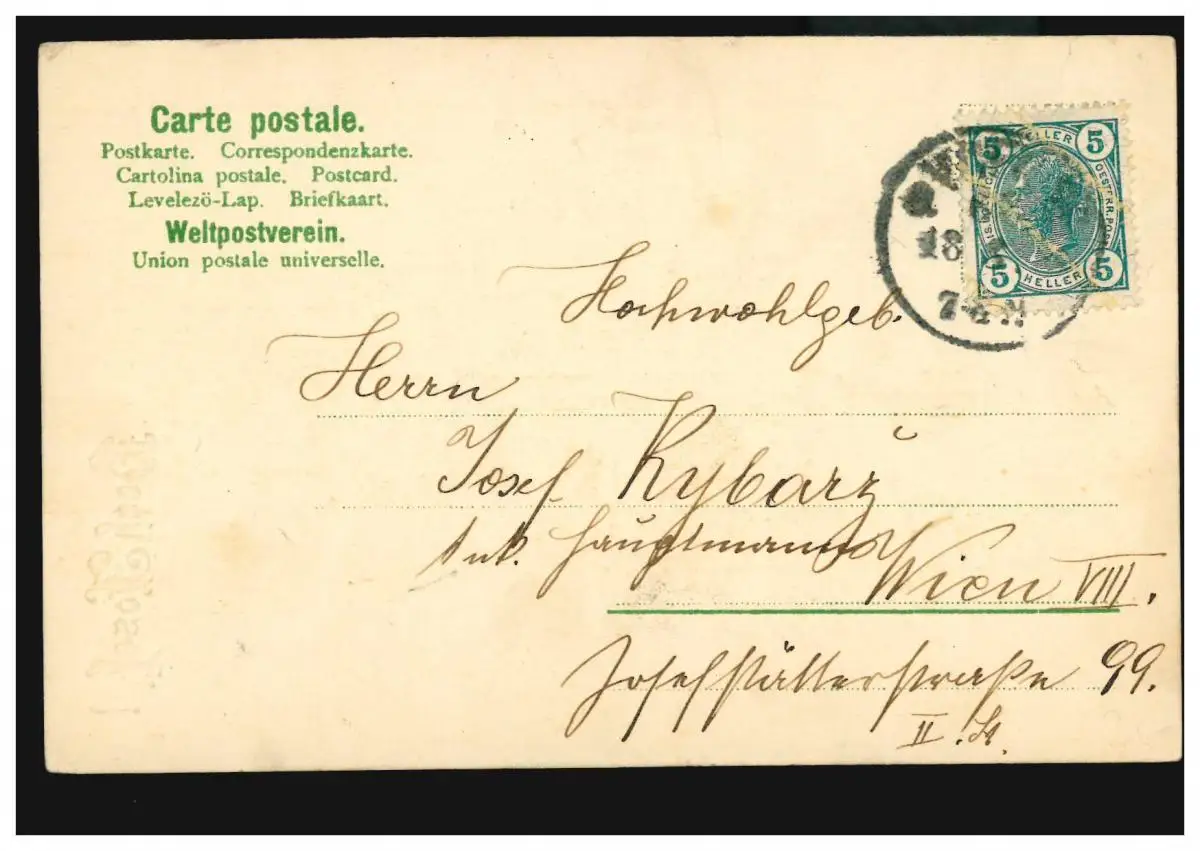 Carte postale.
Postkarte. Correspondenzkarte.
Cartolina postale. Postcard.
Levelezö-Lap. Briefkaart.
Weltpostverein.
Union postale universelle.
5 HELLER 5
OESTERR. POST
5 HELLER 5
18
7-8 N
Hochwohlgeb.
Herrn
Josef Rybarz
k.u.k. Hauptmann
Wien VIII.
Josefstätterstraße 99.
II. St.